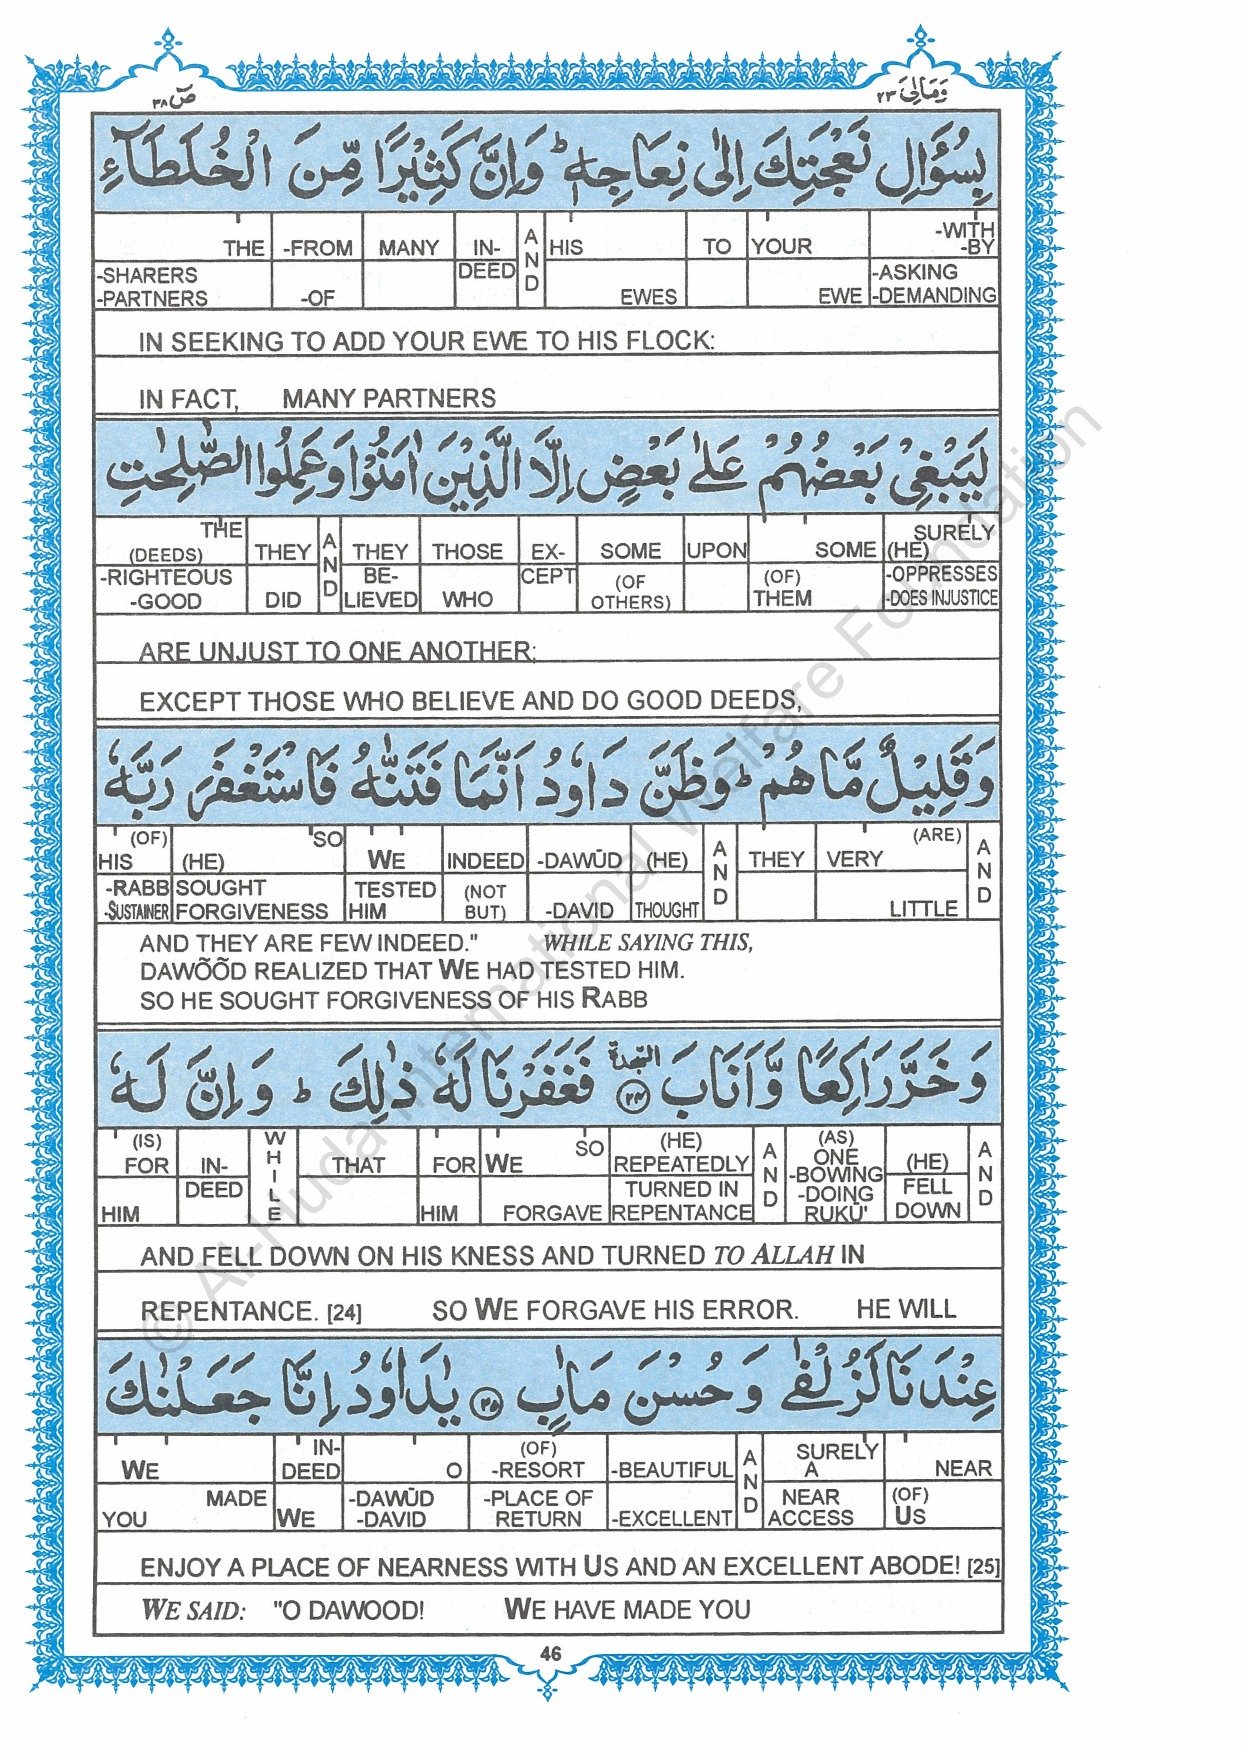 صٓ ٣٨
وَمَالِىَ ٢٣
بِسُؤَالِ نَعْجَتِكَ اِلٰى نِعَاجِهٖ ؕ وَاِنَّ كَثِيْرًا مِّنَ الْخُلَطَآءِ
THE -FROM MANY IN- AND HIS TO YOUR -WITH -BY
-SHARERS -PARTNERS -OF DEED EWES EWE -ASKING -DEMANDING
IN SEEKING TO ADD YOUR EWE TO HIS FLOCK:
IN FACT, MANY PARTNERS
لَيَبْغِىْ بَعْضُهُمْ عَلٰى بَعْضٍ اِلَّا الَّذِيْنَ اٰمَنُوْا وَعَمِلُوا الصّٰلِحٰتِ
THE (DEEDS) THEY AND THEY THOSE EX- SOME UPON SOME SURELY (HE)
-RIGHTEOUS -GOOD DID BE- LIEVED WHO CEPT (OF OTHERS) (OF) THEM -OPPRESSES -DOES INJUSTICE
ARE UNJUST TO ONE ANOTHER:
EXCEPT THOSE WHO BELIEVE AND DO GOOD DEEDS,
وَقَلِيْلٌ مَّا هُمْ ؕ وَظَنَّ دَاوٗدُ اَنَّمَا فَتَنّٰهُ فَاسْتَغْفَرَ رَبَّهٗ
(OF) HIS (HE) SO WE INDEED -DAWŪD (HE) AND THEY VERY (ARE) AND
-RABB -SUSTAINER SOUGHT FORGIVENESS TESTED HIM (NOT BUT) -DAVID THOUGHT LITTLE
AND THEY ARE FEW INDEED." WHILE SAYING THIS,
DAWÕÕD REALIZED THAT WE HAD TESTED HIM.
SO HE SOUGHT FORGIVENESS OF HIS RABB
وَخَرَّ رَاكِعًا وَّاَنَابَ السجدة ٢٤ فَغَفَرْنَا لَهٗ ذٰلِكَ ؕ وَاِنَّ لَهٗ
(IS) FOR IN- WHILE THAT FOR WE SO (HE) REPEATEDLY AND (AS) ONE -BOWING (HE) AND
HIM DEED HIM FORGAVE TURNED IN REPENTANCE -DOING RUKŪ' FELL DOWN
AND FELL DOWN ON HIS KNESS AND TURNED TO ALLAH IN
REPENTANCE. [24] SO WE FORGAVE HIS ERROR. HE WILL
عِنْدَنَا لَزُلْفٰى وَحُسْنَ مَاٰبٍ ٢٥ يٰدَاوٗدُ اِنَّا جَعَلْنٰكَ
WE IN- DEED O (OF) -RESORT -BEAUTIFUL AND SURELY A NEAR
MADE YOU WE -DAWŪD -DAVID -PLACE OF RETURN -EXCELLENT NEAR ACCESS (OF) US
ENJOY A PLACE OF NEARNESS WITH US AND AN EXCELLENT ABODE! [25]
WE SAID: "O DAWOOD! WE HAVE MADE YOU
46
© Al-Huda International Welfare Foundation